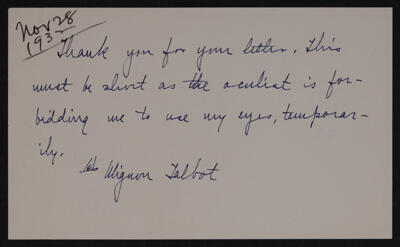 Nov 28
1932
Thank you for your letter. This
must be short as the oculist is for-
bidding me to use my eyes, temporar-
ily.
Mignon Talbot